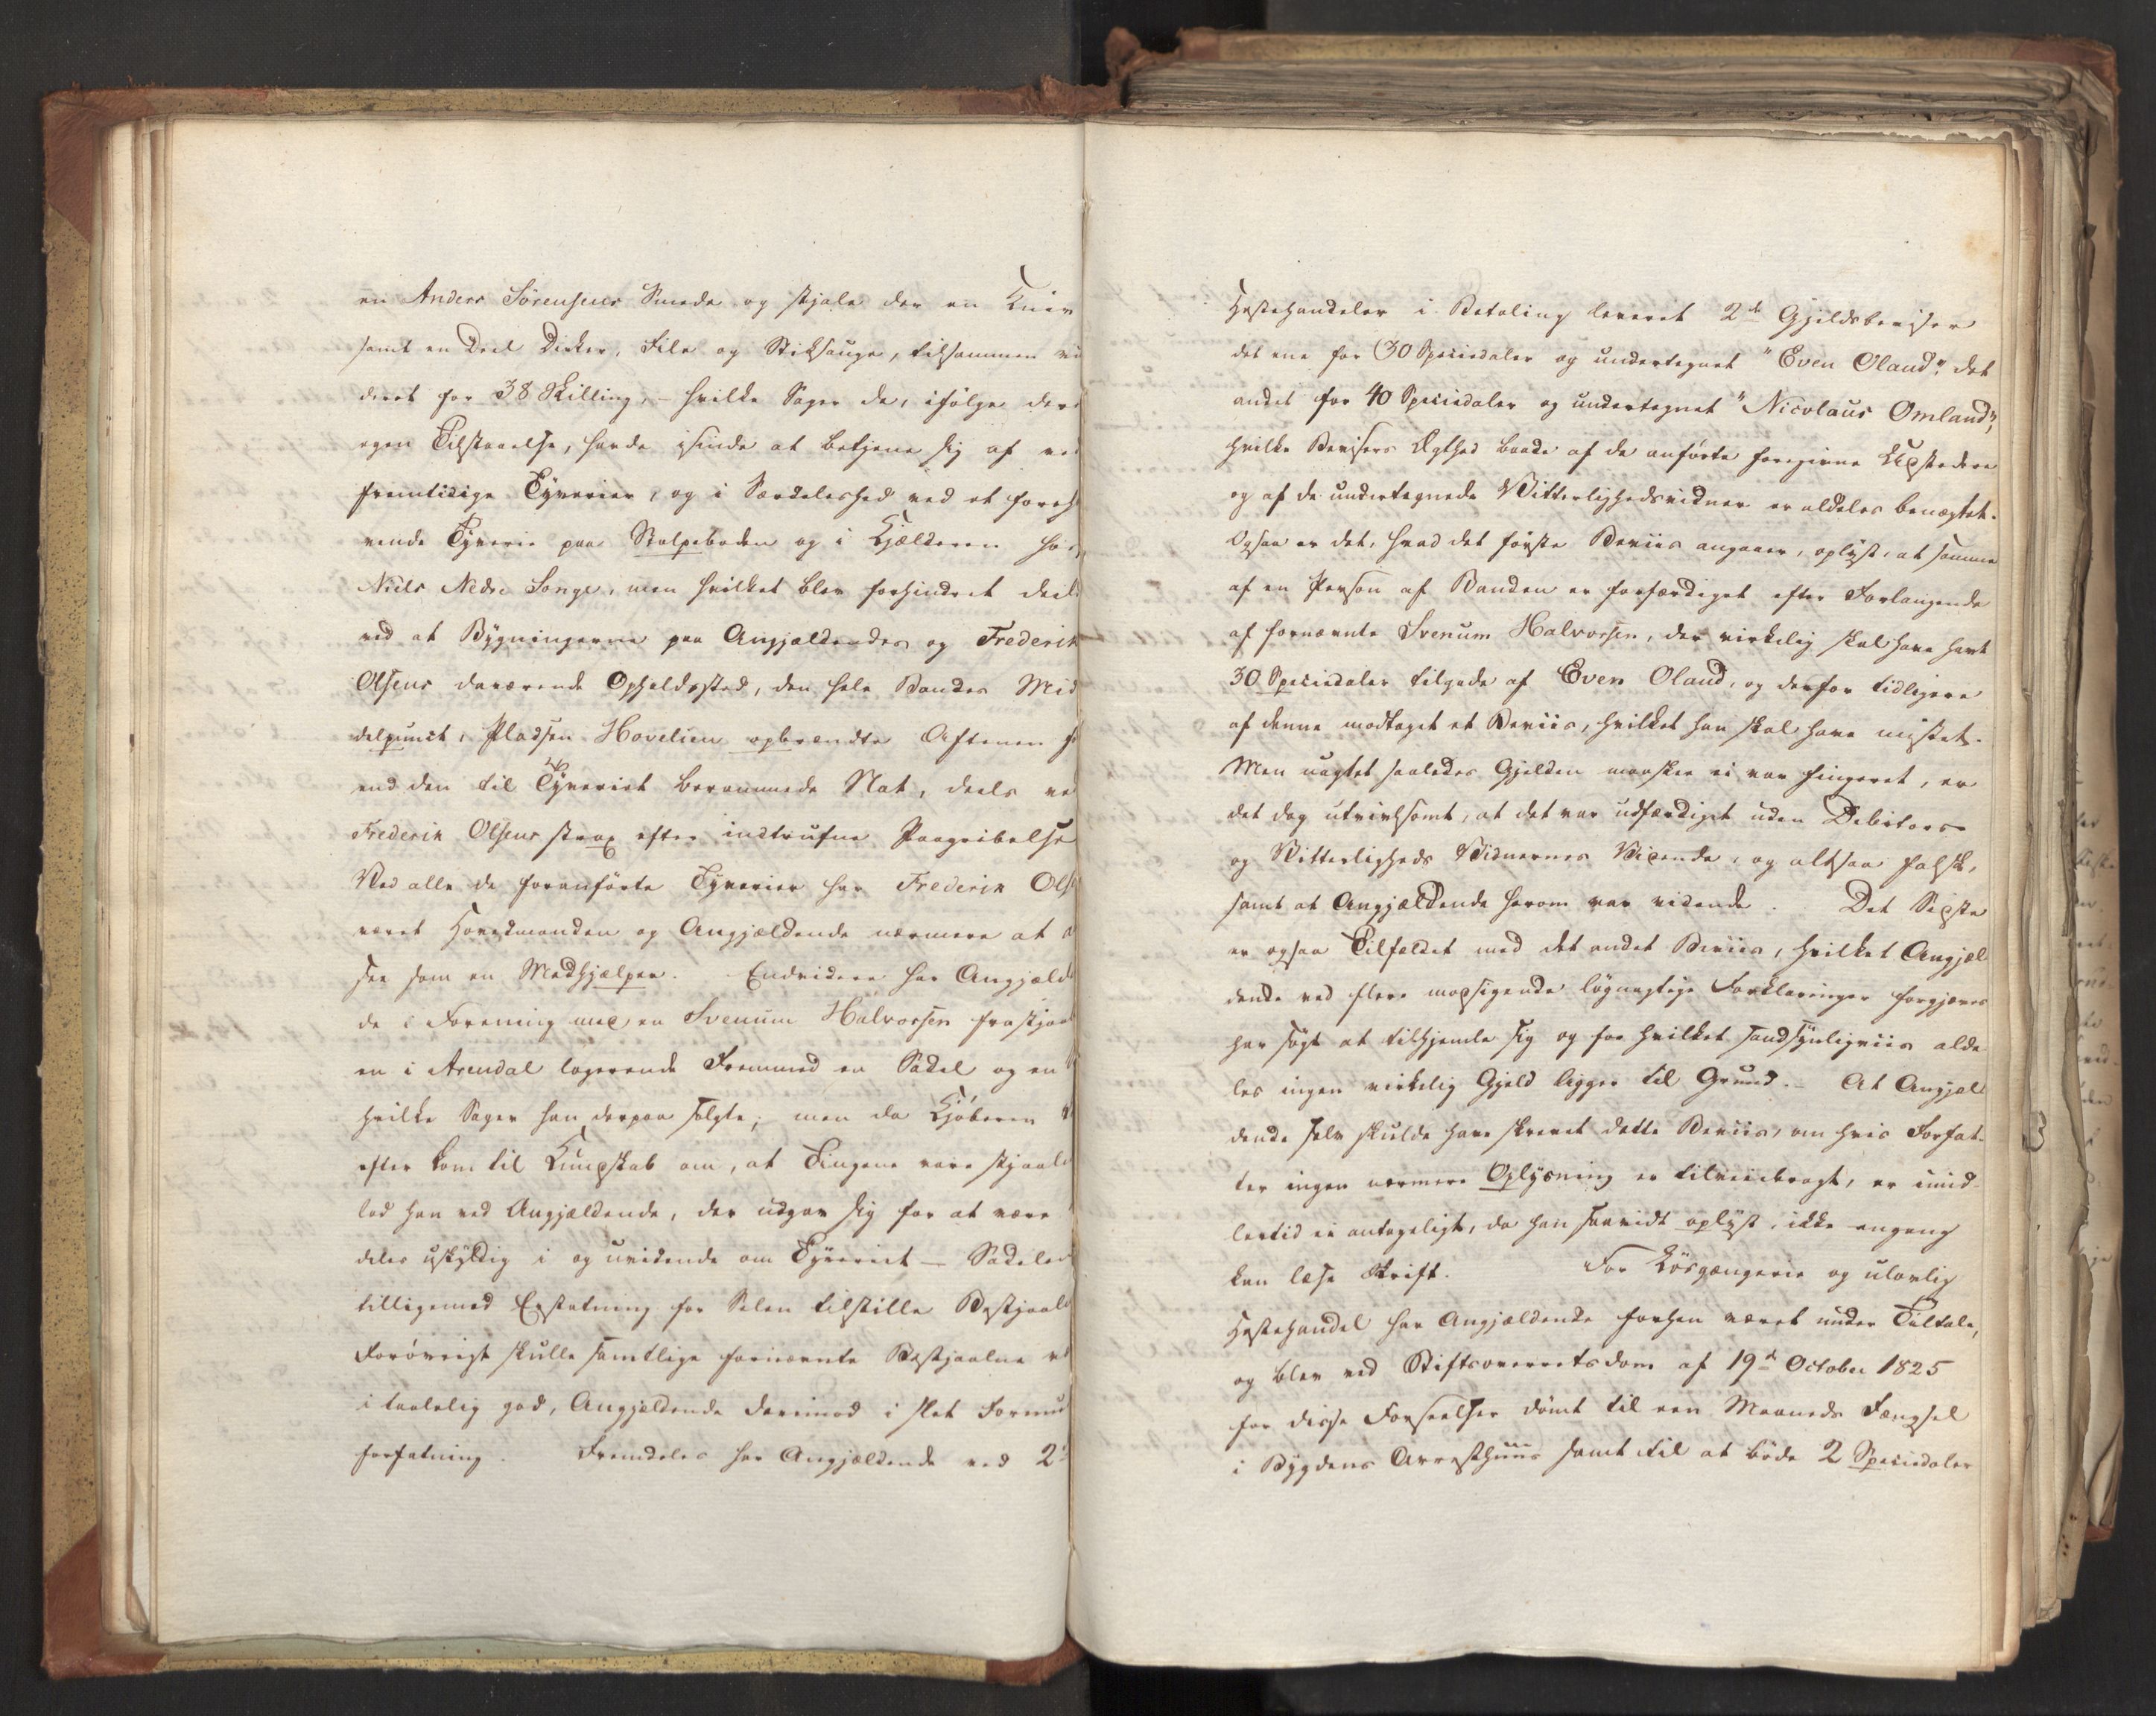 en Anders Sörensens Smede og stjale der en Kniv
samt en Deel Dirker, File og Stiksauge, tilsammen vu
deret for 38 Skilling, – hvilke Sager de, ifølge der
egen Tilstaaelse, havde isinde at betjene sig af ved
fremtidige Tyverier, og i Særdeleshed ved et foreh
vende Tyverie paa Stolpeboden og i Kjælderen hos
Niels Nedre Songe, men hvilket blev forhindret deels
ved at Bygningerne paa Angjældendes og Frederik
Olsens daværende Opholdssted, den hele Bandes Mid
delpunct, Pladsen Hovelien opbrændte Aftenen f
end den til Tyveriet berammede Nat, deels ved
Frederik Olsens strax efter indtrufne Paagribelse
Ved alle de foranførte Tyverier har Frederik Ols
været Hovedmanden og Angjældende nærmere at a
see som en Medhjælper. Endvidere har Angjæld
de i Forening med en Svenum Halvorsen frastjaal
en i Arendal logerende Fremmed en Sadel og en
hvilke Sager han derpaa solgte; men da Kjøberen
efter kom til Kundskab om, at Tingene vare stjaal
lod han ved Angjældende, der udgav sig for at være
deles uskyldig i og uvidende om Tyveriet – Sadelen
tilligemed Erstatning for Selen tilstille Bestjaal
Forøvrigt skulle samtlige fornævnte Bestjaalne v
i taalelig god, Angjældende derimod i slet Formu
forfatning. Fremdeles har Angjældende ved 2
Hestehandeler i Betaling leveret 2de Gjeldsbeviser
det ene for 30 Speciedaler og undertegnet "Even Oland", det
andet for 40 Speciedaler og undertegnet "Nicolaus Omland",
hvilke Bevisers Ægthed baade af de anførte foregivne Udstedere
og af de undertegnede Vitterlighedsvidner er aldeles benægtet.
Ogsaa er det, hvad det første Beviis angaaer, oplyst, at samme
af en Person af Banden er forfærdiget efter Forlangende
af fornævnte Svenum Halvorsen, der virkelig skal have havt
30 Speciedaler tilgode af Even Oland, og derfor tidligere
af denne modtaget et Beviis, hvilket han skal have mistet.
Men uagtet saaledes Gjelden maaskee ei var fingeret, er
det dog utvivlsomt, at det var udfærdiget uden Debitors
og Vitterligheds Vidnernes Vidende, og altsaa falsk,
samt at Angjældende herom var vidende. Det Sidste
er ogsaa Tilfældet med det andet Beviis, hvilket Angjæl
dende ved flere modsigende løgnagtige Forklaringer forgjæves
har søgt at tilhjemle sig og for hvilket sandsynligviis alde
les ingen virkelig Gjeld ligger til Grund. – At Angjæl
dende selv skulde have skrevet dette Beviis, om hvis Forfat-
ter ingen nærmere Oplysning er tilveiebragt, er imid-
lertid ei antageligt, da han saavidt oplyst, ikke engang
kan læse Skrift. For Løsgængerie og ulovlig
Hestehandel har Angjældende forhen været under Tiltale,
og blev ved Stiftsoverretsdom af 19de October 1825
for disse Forseelser dømt til een Maaneds Fængsel
i Bygdens Arresthuus samt til at bøde 2 Speciedaler